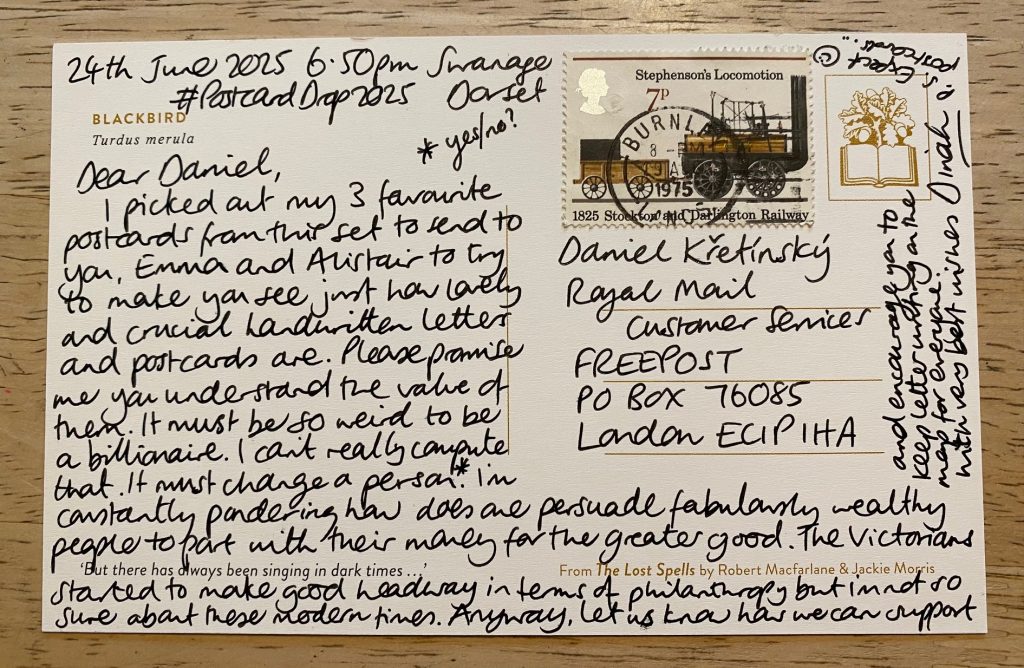 24th June 2025 6.50pm Swanage
#PostcardDrop2025 Dorset
BLACKBIRD
Turdus merula
* yes/no?
Dear Daniel,
I picked out my 3 favourite
postcards from this set to send to
you, Emma and Alistair to try
to make you see just how lovely
and crucial handwritten letters
and postcards are. Please promise
me you understand the value of
them. It must be so weird to be
a billionaire. I can't really compute
that. It must change a person.* I'm
constantly pondering how does one persuade fabulously wealthy
people to part with their money for the greater good. The Victorians
'But there has always been singing in dark times ...'
From The Lost Spells by Robert Macfarlane & Jackie Morris
started to make good headway in terms of philanthropy but im not so
sure about these modern times. Anyway, let us know how we can support
and encourage you to
keep letter writing on the
map for everyone.
with very best wishes Dinah
p.s. Expect
postcards...
Stephenson's Locomotion
7P
BURNL
8 - PM
1975
LANCS
1825 Stockton and Darlington Railway
Daniel Křetínský
Royal Mail
Customer Services
FREEPOST
PO BOX 76085
London EC1P 1HA